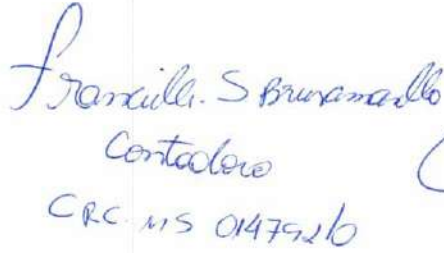 Francielli. S Brunamarllo
Contadora
CRC-MS 014792/0